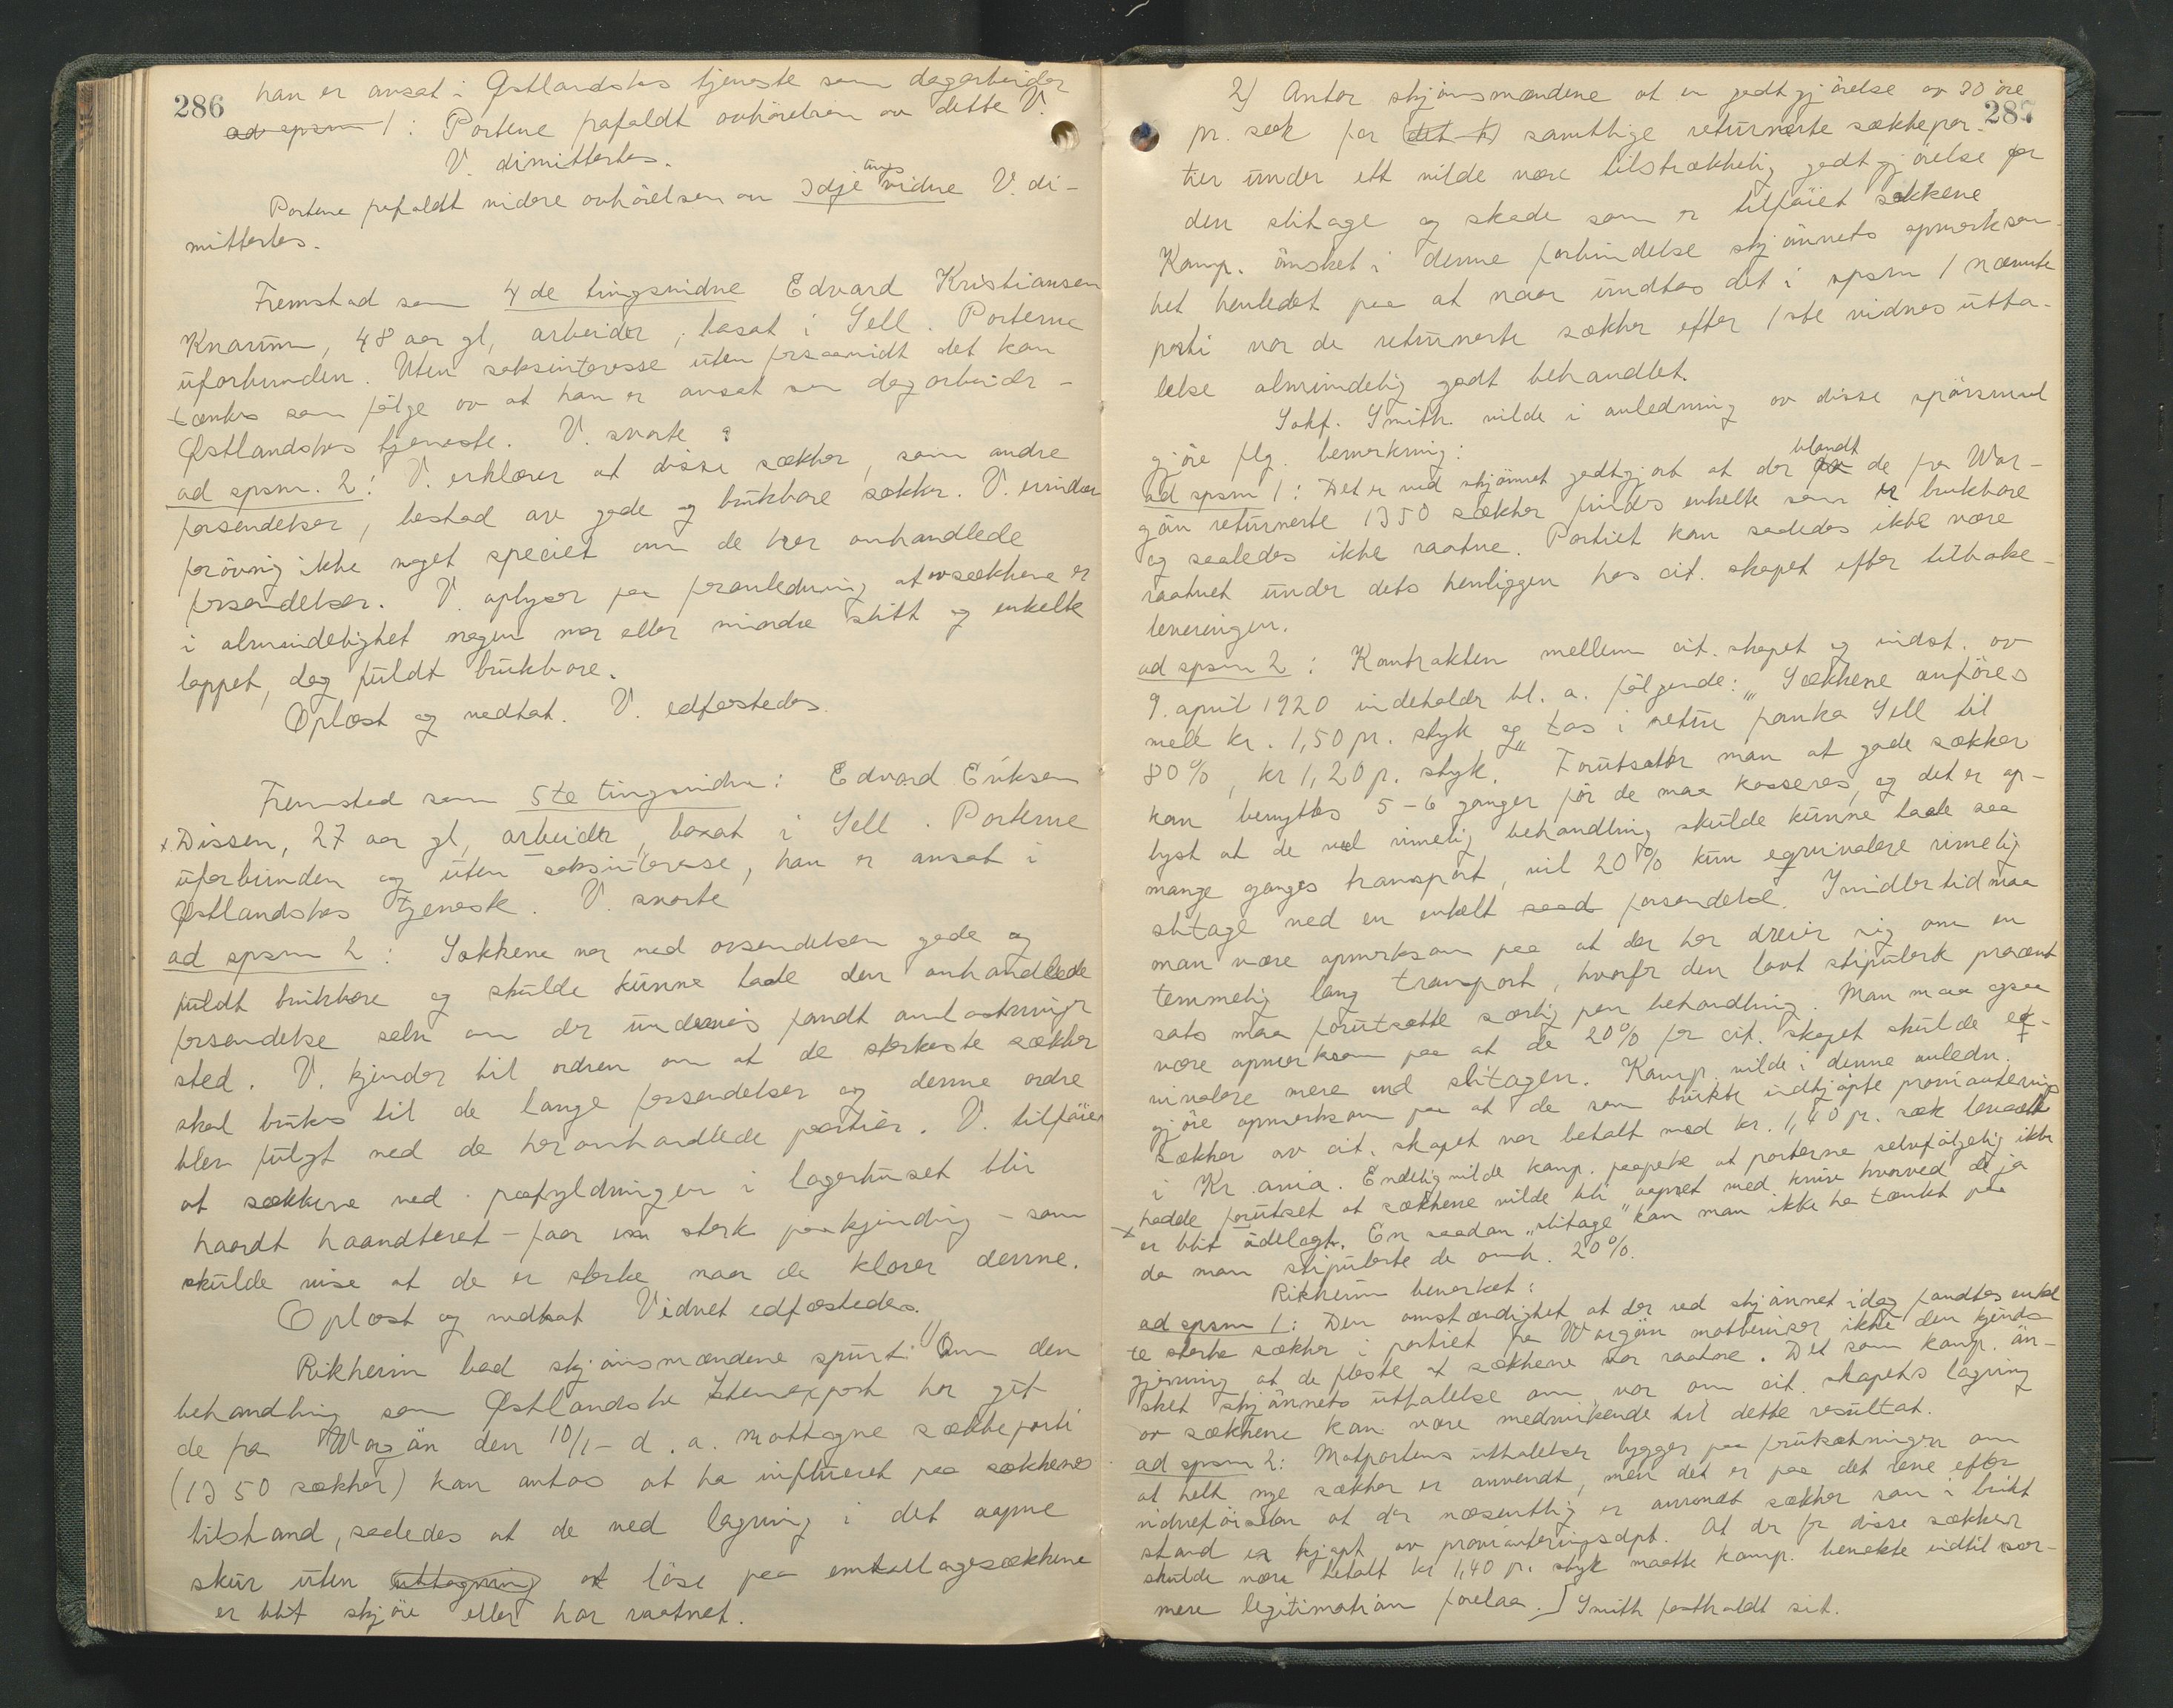 286
han er ansat i Østlandskes tjeneste som dagarbeider
ad spsm 1: Partene frafaldt avhörelsen av dette V.
V. dimittertes.
Partene frafaldt videre avhörelsen av 3dje tings vidne V. di-
mittertes.
Fremstod som 4de tingsvidne Edvard Kristiansen
Knarum, 48 aar gl, arbeider, bosat i Sell. Parterne
uforbunden. Uten saksinteresse uten forsaavidt det kan
tænkes som fölge av at han er ansat som dagarbeider -
Østlandskes tjeneste. V. svarte :
ad spsm. 2: V. erklærer at disse sækker, som andre
forsendelser, bestod av gode og brukbare sækker. V. erindrer
forövrig ikke noget specielt om de her omhandlede
forsendelser. V. oplyser paa foranledning at sækkene er
i almindelighet nogen mer eller mindre slitt og enkelte
lappet, dog fuldt brukbare.
Oplæst og vedtat. V. edfæstedes.
Fremstod som 5te tingsvidne: Edvard Eriksen
x Dissen, 27 aar gl, arbeider, bosat i Sell. Parterne
uforbunden og uten saksinteresse, han er ansat i
Østlandskes tjeneste. V. svarte
ad spsm 2: Sækkene var ved avsendelsen gode og
fuldt brukbare og skulde kunne taale den omhandlede
forsendelse selv om der underveis fandt omlastninger
sted. V. kjender til ordren om at de sterkeste sækker
skal brukes til de lange forsendelser og denne ordre
blev fulgt ved de her omhandlede partier. V. tilföier
at sækkene ved paafyldningen i lagerhuset blir
haardt haandteret - faar en sterk paakjending - som
skulde vise at de er sterke naar de klarer denne.
Oplæst og vedtat Vidnet edfæstedes.
Rikheim bad skjönsmændene spurt: 1) Om den
behandling som Østlandske Stenexport har git
de fra Wargön den 10/1- d. a. mottagne sækkeparti
(1350 sækker) kan antas at ha influeret paa sækkenes
tilstand, saaledes at de ved lagring i det aapne
skur uten uttagning at löse paa emballagesækkene
er blit skjöre eller har raatnet.
287
2) Antar skjönsmændene at en godtgjörelse av 30 öre
pr. sæk for det h samtlige returnerte sækkepar-
tier under ett vilde være tilstrækkelig godtgjörelse for
den slitage og skade som er tilföiet sækkene
Kamp. önsket i denne forbindelse skjönnets opmerksom-
het henledet paa at naar undtas det i spsm 1 nævnte
parti var de returnerte sækker efter 1ste vidnes utta-
lelse almindelig godt behandlet.
Sakf. Smith vilde i anledning av disse spörsmaal
gjöre flg. bemerkning:
ad spsm 1: Det er ved skjönnet godtgjort at der blandt de fra War-
gön returnerte 1350 sækker findes enkelte som er brukbare
og saaledes ikke raatne. Partiet kan saaledes ikke være
raatnet under dets henliggen hos cit. skapet efter tilbake-
leveringen.
ad spsm 2: Kontrakten mellem cit. skapet og indst. av
9. april 1920 indeholder bl. a. fölgende: "Sækkene anföres
med kr. 1,50 pr. styk og tas i retur franko Sell til
80%, kr 1,20 pr. styk." Forutsætter man at gode sækker
kan benyttes 5-6 ganger för de maa kasseres, og det er op-
lyst at de ved rimelig behandling skulde kunne taale saa
mange ganges transport, vil 20% kun eqvivalere rimelig
slitage ved en enkelt saad forsendelse. Imidlertid maa
man være opmerksom paa at der her dreier sig om en
temmelig lang transport, hvorfor den lavt stipulerte procent
sats maa forutsætte særlig pen behandling. Man maa ogsaa
være opmerksom paa at de 20% for cit. skapet skulde eq-
vivalere mere end slitagen. Kamp. vilde i denne anledn.
gjöre opmerksom paa at de som brukte indkjöpte provianterings
sækker av cit. skapet var betalt med kr. 1,40 pr. sæk levert
i Kr.ania. Endelig vilde kamp. paapeke at parterne selvfölgelig ikke
hadde forutset at sækkene vilde bli aapnet med kniv hvorved de ja
x er blit ödelagt. En saadan "slitage" kan man ikke ha tænkt paa
da man stipulerte de omh. 20%.
Rikheim bemerket:
ad spsm 1: Den omstændighet at der ved skjönnet idag fandtes enkel
te sterke sækker i partiet fra Wargön motbeviser ikke den kjends
gjerning at de fleste af sækkene var raatne. Det som kamp. ön-
sket skjönnets uttalelse om var om cit. skapets lagring
av sækkene kan være medvirkende til dette resultat.
ad spsm 2: Motpartens uttalelser bygger paa forutsætningen om
at helt nye sækker er anvendt, men det er paa det rene efter
vidneförselen at der væsentlig er anvendt sækker som i brukt
stand er kjøpt av provianteringsdpt. At der for disse sækker
skulde være betalt kr 1,40 pr. styk maatte kamp. benekte indtil nær-
mere legitimation forelaa. ] Smith fastholdt sit.